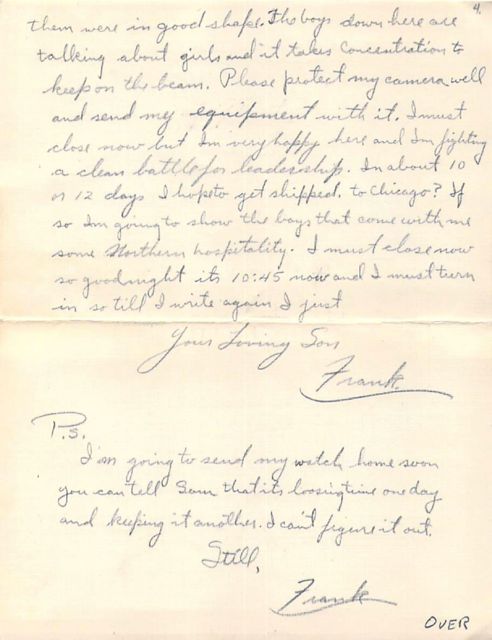 4.
them were in good shape. The boys down here are
talking about girls and it takes concentration to
keep on the beam. Please protect my camera well
and send my equipment with it. I must
close now but I'm very happy here and I'm fighting
a clean battle for leadership. In about 10
or 12 days I hope to get shipped. to Chicago? If
so I'm going to show the boys that come with me
some Northern hospitality. I must close now
so goodnight its 10:45 now and I must turn
in so till I write again I just
Your Loving Son
Frank.
P.S.
I'm going to send my watch home soon
you can tell Sam that its loosing time one day
and keeping it another. I can't figure it out.
Still,
Frank
OVER